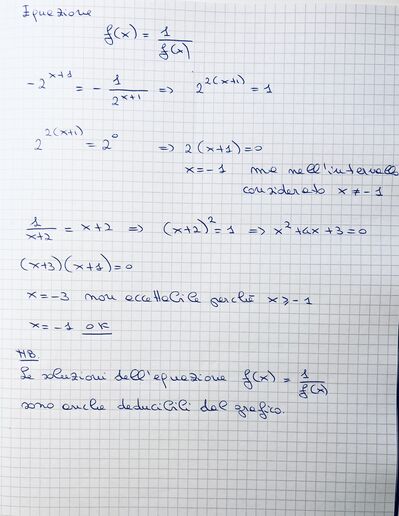 Equazione
f(x) = 1/f(x)
-2^(x+1) = - 1/2^(x+1) => 2^(2(x+1)) = 1
2^(2(x+1)) = 2^0 => 2(x+1)=0
x=-1 ma nell'intervallo
considerato x ≠ -1
1/(x+2) = x+2 => (x+2)^2=1 => x^2+4x+3=0
(x+3)(x+1)=0
x=-3 non accettabile perché x ≥ -1
x=-1 OK
NB.
Le soluzioni dell'equazione f(x) = 1/f(x)
sono anche deducibili dal grafico.